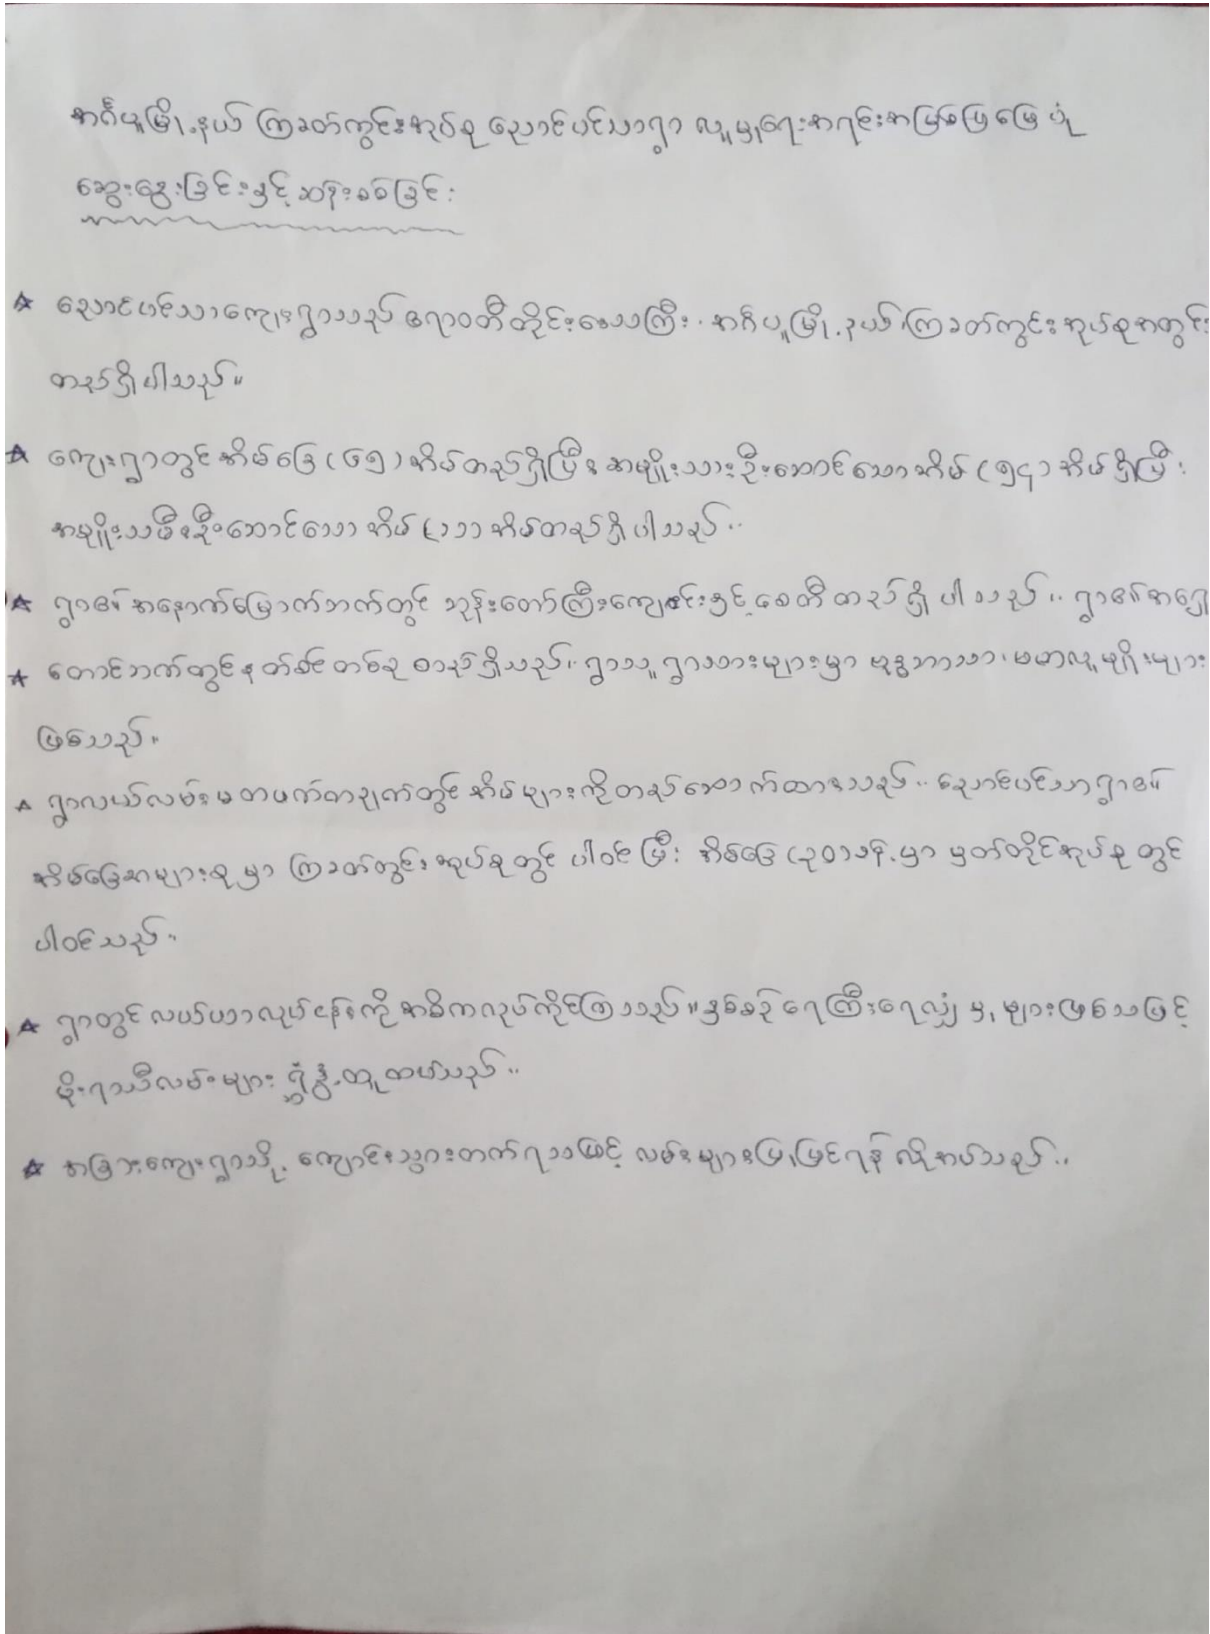 အင်္ဂပူမြို့နယ် ကြခတ်ကွင်းအုပ်စု ညောင်ပင်သာရွာ လူမှုရေးအရင်းအမြစ်ပြမြေပုံ
ဆွေးနွေးခြင်းနှင့် ဆန်းစစ်ခြင်း
★ ညောင်ပင်သာကျေးရွာသည် ဧရာဝတီတိုင်းဒေသကြီး၊ အင်္ဂပူမြို့နယ်၊ ကြခတ်ကွင်းအုပ်စုအတွင်း
တည်ရှိပါသည်။
★ ကျေးရွာတွင် အိမ်ခြေ (၆၅) အိမ်တည်ရှိပြီး အမျိုးသားဦးဆောင်သောအိမ် (၅၄) အိမ်ရှိပြီး
အမျိုးသမီးဦးဆောင်သော အိမ် (၁၁) အိမ်တည်ရှိပါသည်။
★ ရွာ၏ အနောက်မြောက်ဘက်တွင် ဘုန်းတော်ကြီးကျောင်းနှင့် စေတီ တည်ရှိပါသည်။ ရွာ၏အရှေ့
★ တောင်ဘက်တွင် နတ်စင်တစ်ခု တည်ရှိသည်။ ရွာသူရွာသားများမှာ ဗုဒ္ဓဘာသာ၊ ဗမာလူမျိုးများ
ဖြစ်သည်။
★ ရွာလယ်လမ်းမတဖက်တချက်တွင် အိမ်များကိုတည်ဆောက်ထားသည်။ ညောင်ပင်သာရွာ၏
အိမ်ခြေအများစုမှာ ကြခတ်တွင်းအုပ်စုတွင် ပါဝင်ပြီး အိမ်ခြေ (၃၀) ခန့်မှာ မှတ်တိုင်အုပ်စုတွင်
ပါဝင်သည်။
★ ရွာတွင် လယ်ယာလုပ်ငန်းကို အဓိကလုပ်ကိုင်ကြသည်။ နှစ်စဉ် ရေကြီးရေလျှံမှုများဖြစ်သဖြင့်
မိုးရာသီလမ်းများ ရွှံ့နွံထူထပ်သည်။
★ အခြားကျေးရွာသို့ ကျောင်းသွားတက်ရသဖြင့် လမ်းများပြုပြင်ရန် လိုအပ်သည်။